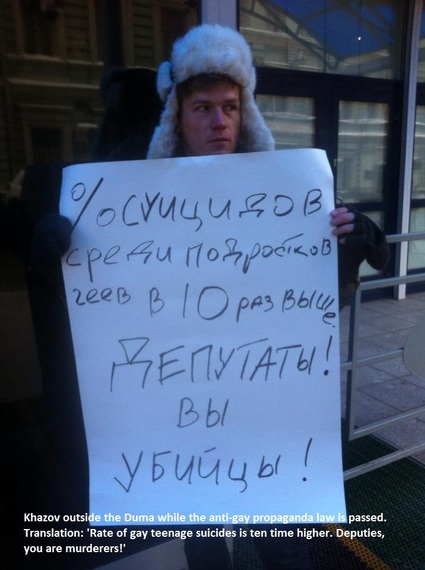 % осуицидов
среди подростков
геев в 10 раз выше
ДЕПУТАТЫ!
ВЫ
УБИЙЦЫ!
Khazov outside the Duma while the anti-gay propaganda law is passed.
Translation: 'Rate of gay teenage suicides is ten time higher. Deputies,
you are murderers!'